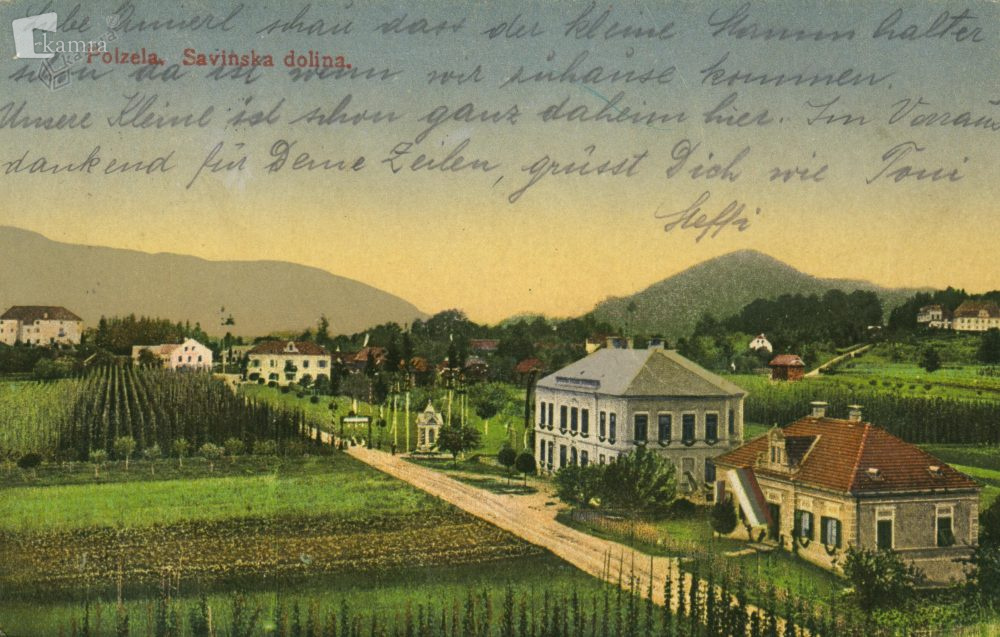 Liebe Emmerl schau dass der kleine Stamm halter
schau da ist wenn wir zuhause kommen.
Unsere Kleine ist schon ganz daheim hier. Im Voraus
dankend für Deine Zeilen, grüsst Dich wie Toni
Steffi
kamra
Polzela. Savinska dolina.